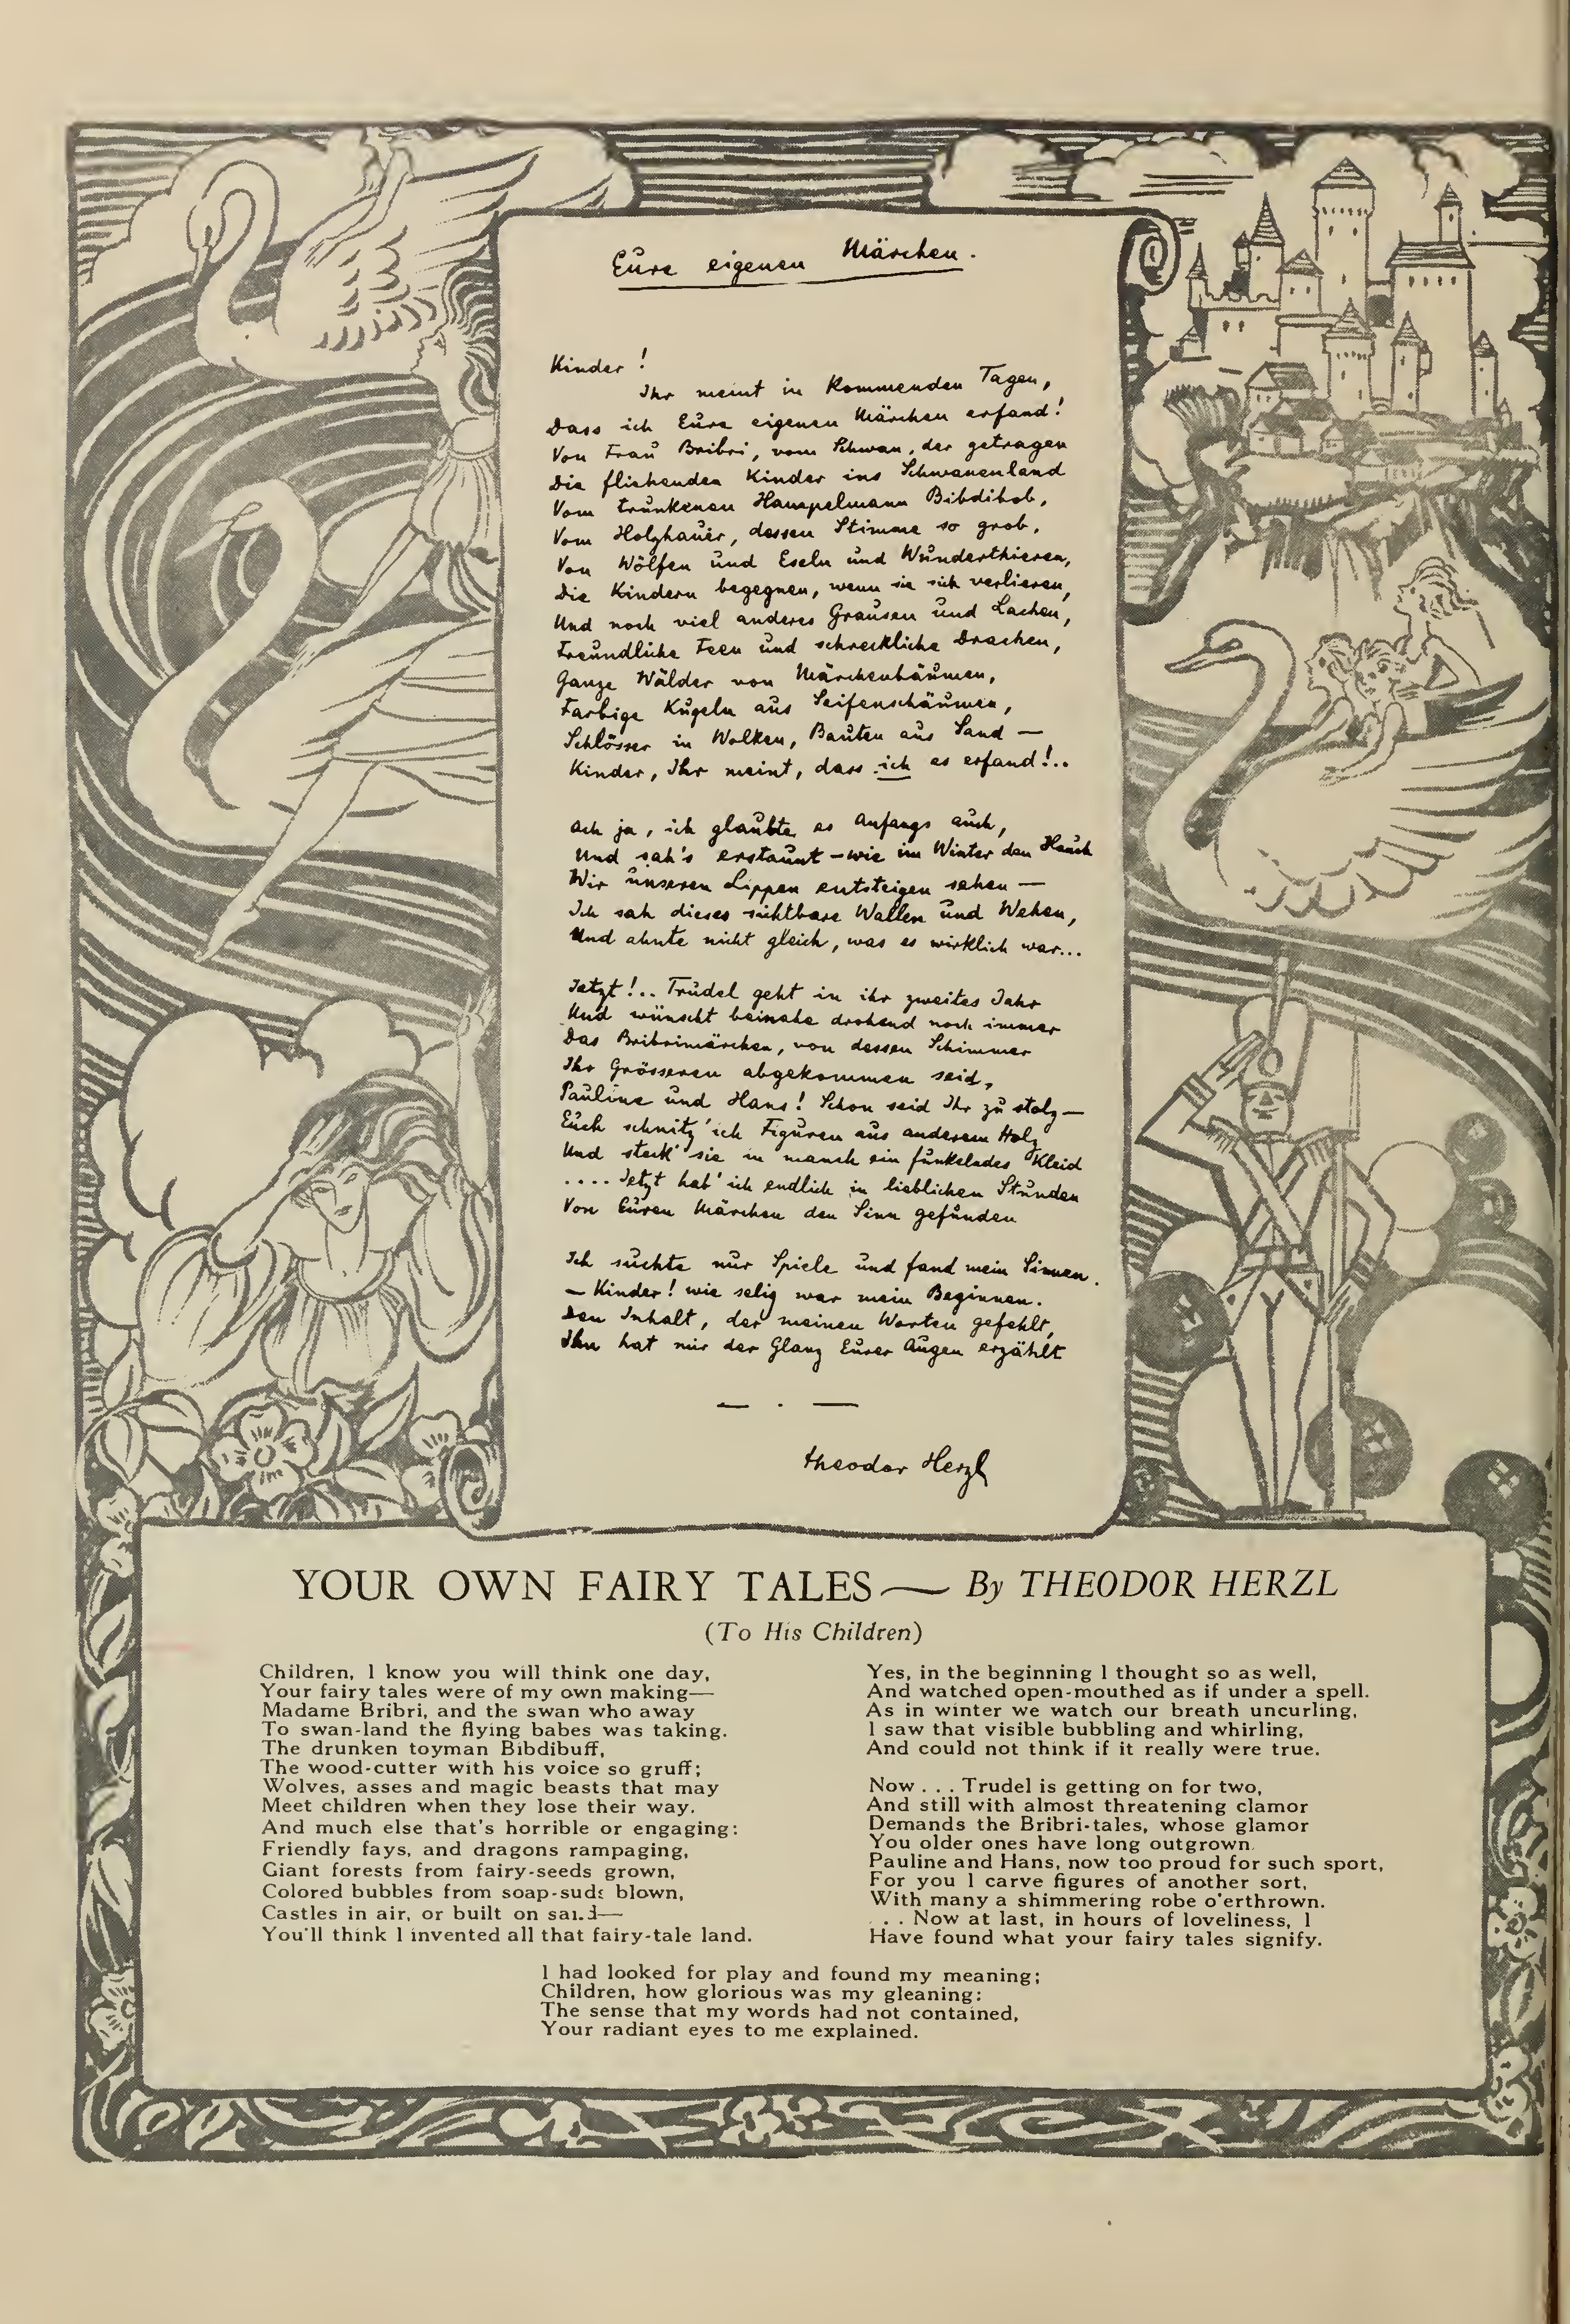 Eure eigenen Märchen.
Kinder!
Ihr meint in kommenden Tagen,
Dass ich Eure eigenen Märchen erfand!
Von Frau Bribri, vom Schwan, der getragen
Die fliehenden Kinder ins Schwanenland
Vom trunkenen Hampelmann Bibdibob,
Vom Holzhauer, dessen Stimme so grob,
Von Wölfen und Eseln und Wunderthieren,
Die Kindern begegnen, wenn sie sich verlieren,
Und noch viel anderes Grausen und Lachen,
Freundliche Feen und schreckliche Drachen,
Ganze Wälder von Märchenbäumen,
Farbige Kugeln aus Seifenschäumen,
Schlösser in Wolken, Bauten aus Sand —
Kinder, Ihr meint, dass ich es erfand!..
Ach ja, ich glaubte es Anfangs auch,
Und sah's erstaunt — wie im Winter den Hauch
Wir unseren Lippen entsteigen sehen —
Ich sah dieses sichtbare Wallen und Wehen,
Und ahnte nicht gleich, was es wirklich war...
Jetzt!.. Trudel geht in ihr zweites Jahr
Und wünscht beinahe drohend noch immer
Das Bribrimärchen, von dessen Schimmer
Ihr Grösseren abgekommen seid,
Pauline und Hans! Schon seid Ihr zu stolz —
Euch schnitz' ich Figuren aus anderem Holz
Und steck' sie in manch ein funkelndes Kleid
.... Jetzt hab' ich endlich in lieblichen Stunden
Von Euren Märchen den Sinn gefunden
Ich suchte nur Spiele und fand mein Sinnen.
— Kinder! wie selig war mein Beginnen.
Den Inhalt, der meinen Worten gefehlt,
Ihn hat mir der Glanz Eurer Augen erzählt
— . —
Theodor Herzl
YOUR OWN FAIRY TALES — By THEODOR HERZL
(To His Children)
Children, I know you will think one day,
Your fairy tales were of my own making—
Madame Bribri, and the swan who away
To swan-land the flying babes was taking.
The drunken toyman Bibdibuff,
The wood-cutter with his voice so gruff;
Wolves, asses and magic beasts that may
Meet children when they lose their way.
And much else that's horrible or engaging:
Friendly fays, and dragons rampaging,
Giant forests from fairy-seeds grown,
Colored bubbles from soap-suds blown,
Castles in air, or built on sand—
You'll think I invented all that fairy-tale land.
Yes, in the beginning I thought so as well,
And watched open-mouthed as if under a spell.
As in winter we watch our breath uncurling,
I saw that visible bubbling and whirling,
And could not think if it really were true.
Now . . . Trudel is getting on for two,
And still with almost threatening clamor
Demands the Bribri-tales, whose glamor
You older ones have long outgrown.
Pauline and Hans, now too proud for such sport,
For you I carve figures of another sort,
With many a shimmering robe o'erthrown.
. . . Now at last, in hours of loveliness, I
Have found what your fairy tales signify.
I had looked for play and found my meaning;
Children, how glorious was my gleaning:
The sense that my words had not contained,
Your radiant eyes to me explained.